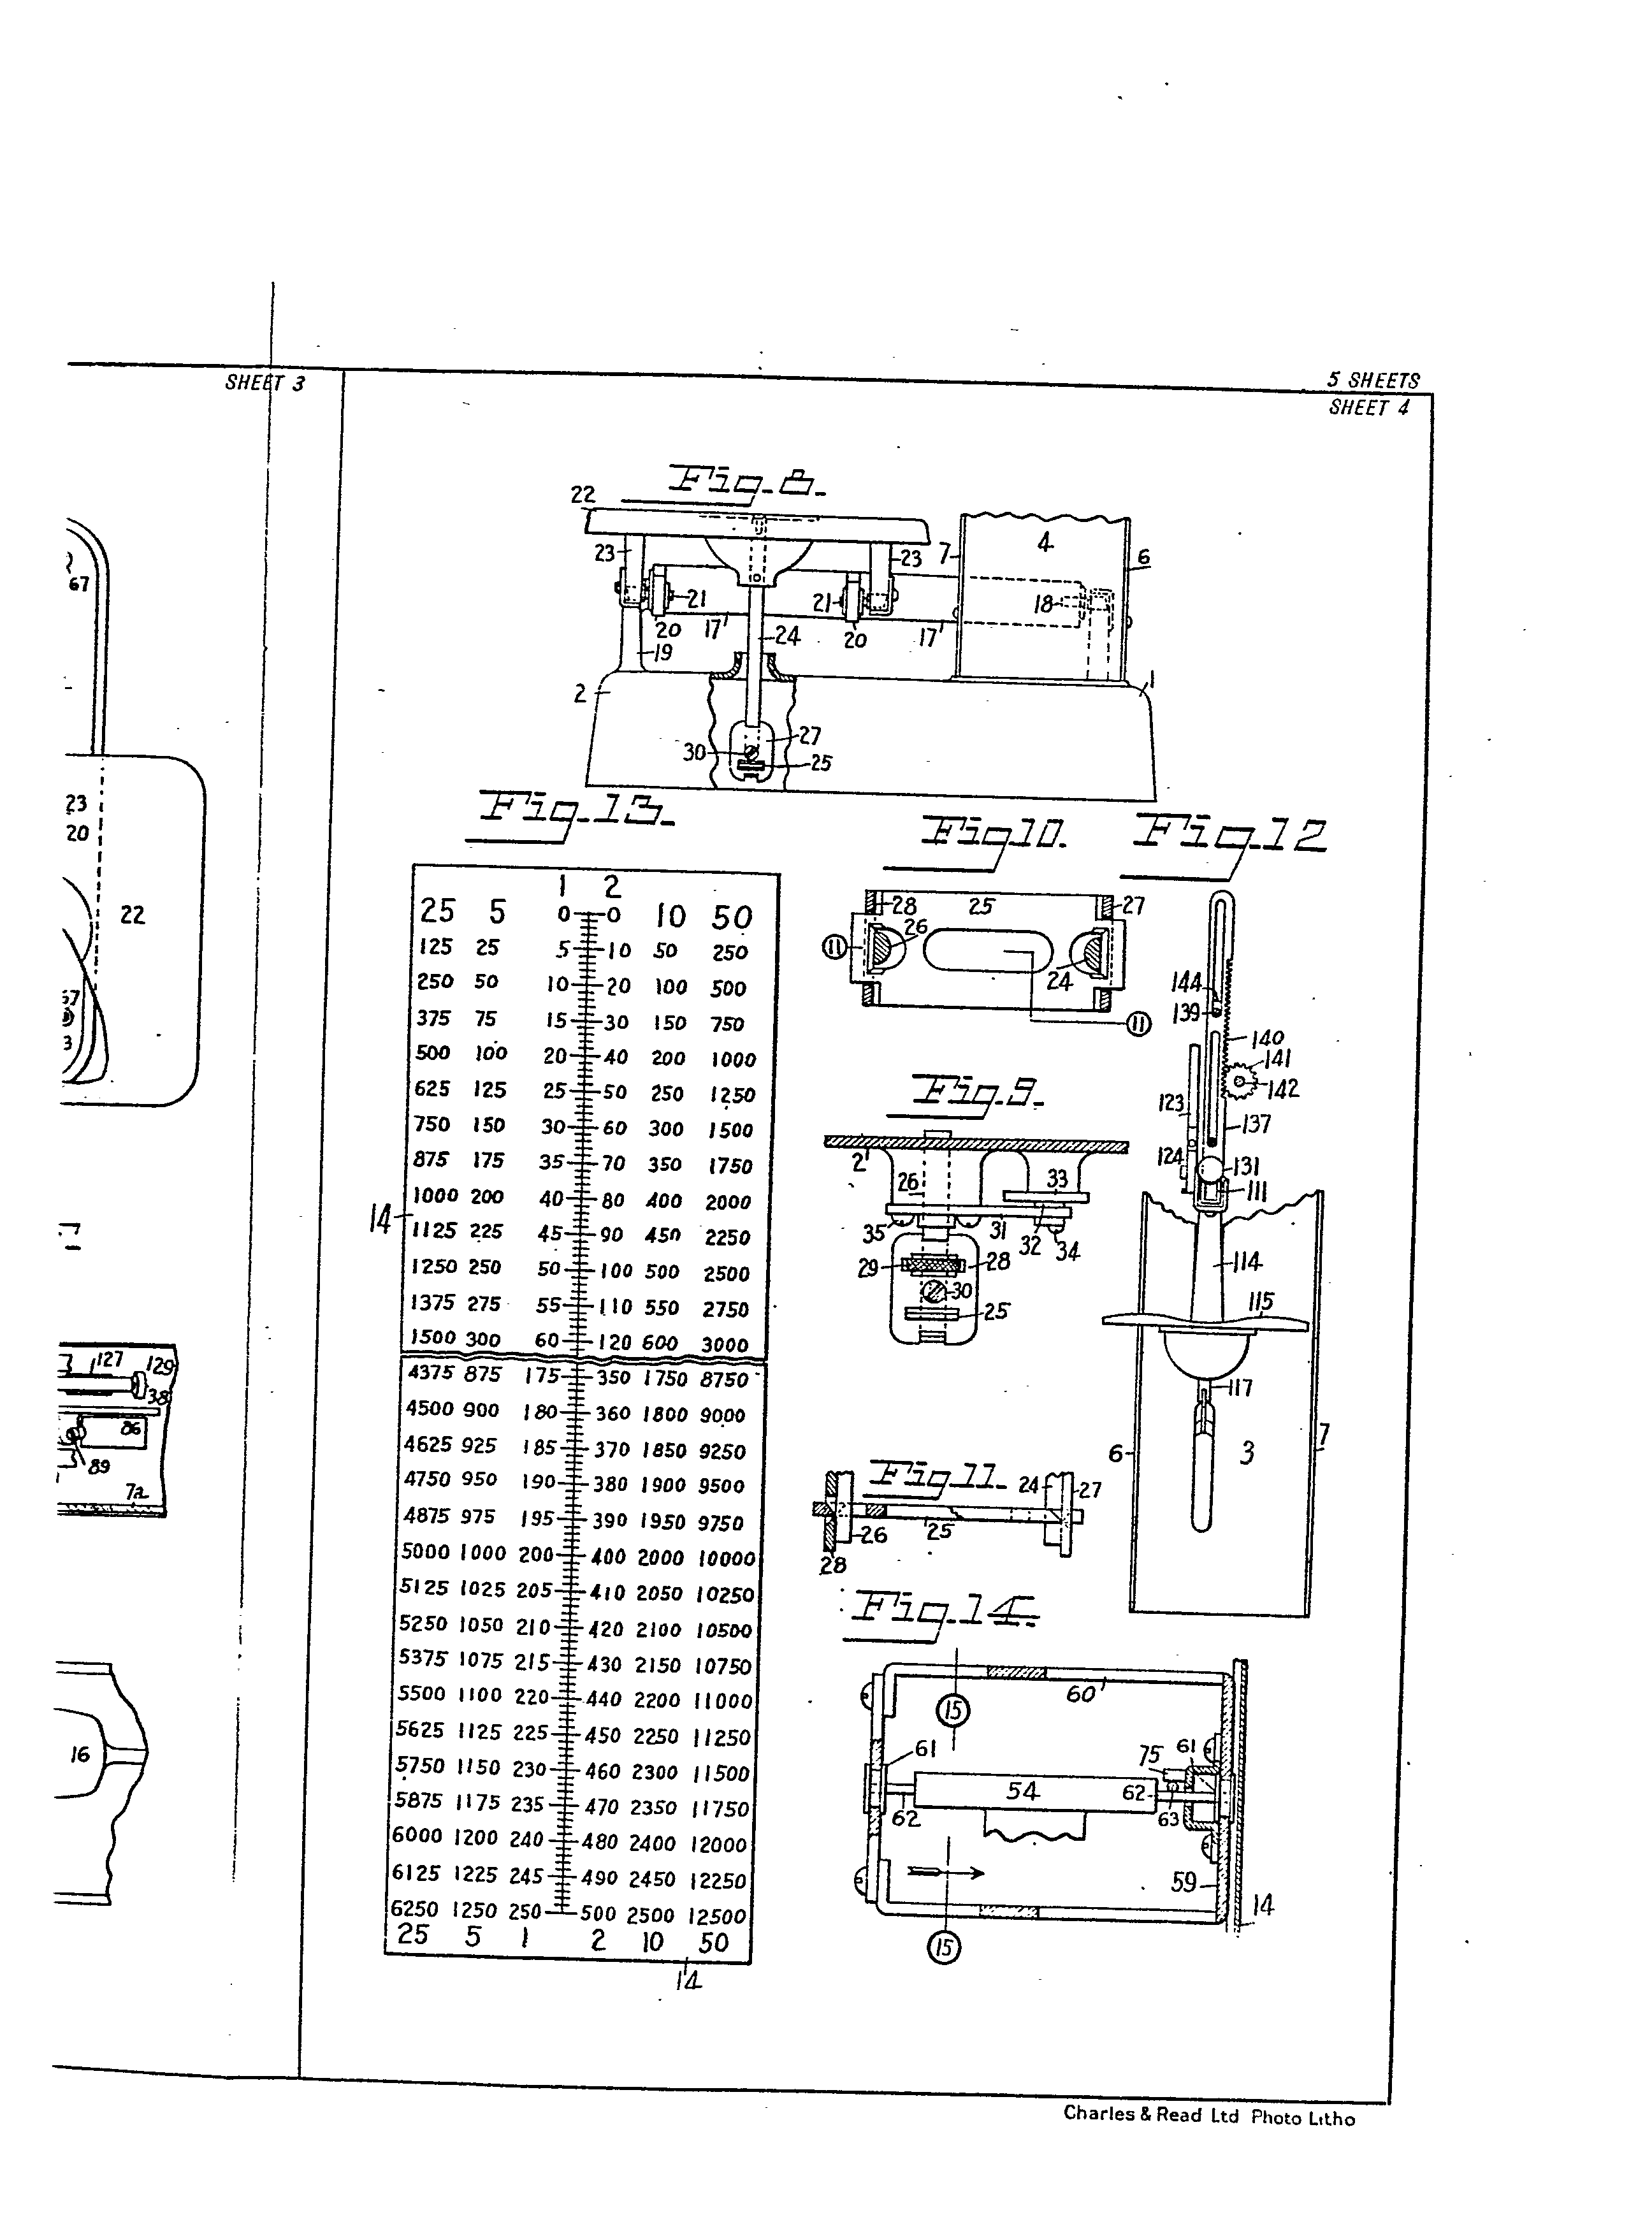 SHEET 3
5 SHEETS
SHEET 4
67
23
20
22
67
3
127 129
38
86
89
7a
16
Fig. 8.
22
23 23 7 4 6
21 21 18
20 17 24 20 17
19
2 1
27
30 25
Fig. 13.
1 2
25 5 0 0 10 50
125 25 5 10 50 250
250 50 10 20 100 500
375 75 15 30 150 750
500 100 20 40 200 1000
625 125 25 50 250 1250
750 150 30 60 300 1500
875 175 35 70 350 1750
1000 200 40 80 400 2000
14
1125 225 45 90 450 2250
1250 250 50 100 500 2500
1375 275 55 110 550 2750
1500 300 60 120 600 3000
4375 875 175 350 1750 8750
4500 900 180 360 1800 9000
4625 925 185 370 1850 9250
4750 950 190 380 1900 9500
4875 975 195 390 1950 9750
5000 1000 200 400 2000 10000
5125 1025 205 410 2050 10250
5250 1050 210 420 2100 10500
5375 1075 215 430 2150 10750
5500 1100 220 440 2200 11000
5625 1125 225 450 2250 11250
5750 1150 230 460 2300 11500
5875 1175 235 470 2350 11750
6000 1200 240 480 2400 12000
6125 1225 245 490 2450 12250
6250 1250 250 500 2500 12500
25 5 1 2 10 50
14
Fig 10.
28 25 27
11 26
24
11
Fig. 12
144
139
140
141
142
123
137
124 131
111
114
115
117
6 3 7
Fig. 9.
2
26 33
35 31 32 34
29 28
30
25
Fig. 11.
24 27
26 25
28
Fig. 14.
60
15
61 75 61
54 62
62 63
59
14
15
Charles & Read Ltd Photo Litho